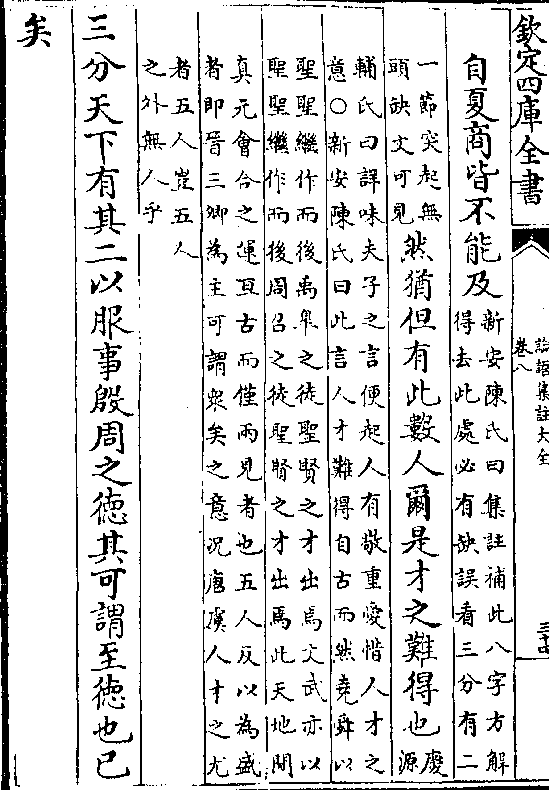 欽定四庫全書
論語集註大全
卷八
自夏商皆不能及
新安陳氏曰集註補此八字方解
得去此處必有缺誤看三分有二
一節突起無
頭缺文可見
然猶但有此數人爾是才之難得也
慶
源
輔氏曰詳味夫子之言便起人有敬重愛惜人才之
意○新安陳氏曰此言人才難得自古而然堯舜以
聖聖繼作而後禹臯之徒聖賢之才出焉文武亦以
聖聖繼作而後周召之徒聖賢之才出焉此天地間
真元會合之運亘古而僅兩見者也五人反以為盛
者即晉三卿為主可謂衆矣之意況唐虞人才之尤
者五人豈五人
之外無人乎
三分天下有其二以服事殷周之徳其可謂至徳也已
矣